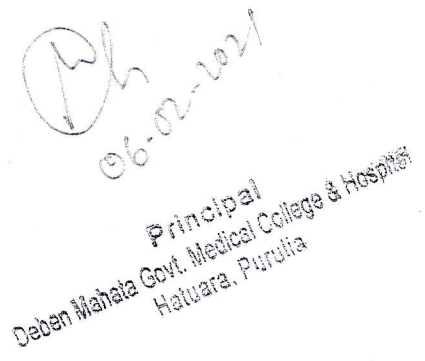 06-02-2021
Principal
Deben Mahata Govt. Medical College & Hospital
Hatuara, Purulia